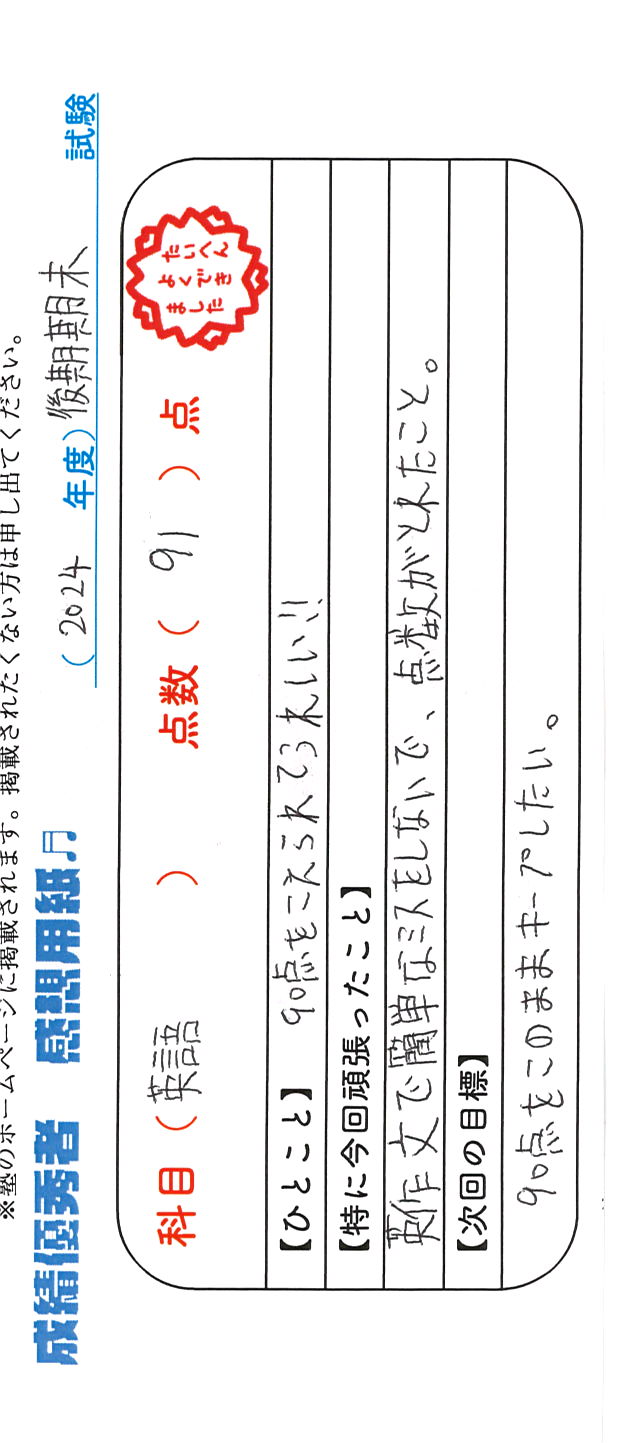 ※塾のホームページに掲載されます。掲載されたくない方は申し出てください。
成績優秀者 感想用紙♬ (2024 年度) 後期期末 試験
科目 ( 英語 ) 点数 ( 91 ) 点
たいへん
よくでき
ました
【ひとこと】 90点をこえられてうれしい!!
【特に今回頑張ったこと】
英作文で簡単なミスをしないで、点数がとれたこと。
【次回の目標】
90点をこのままキープしたい。